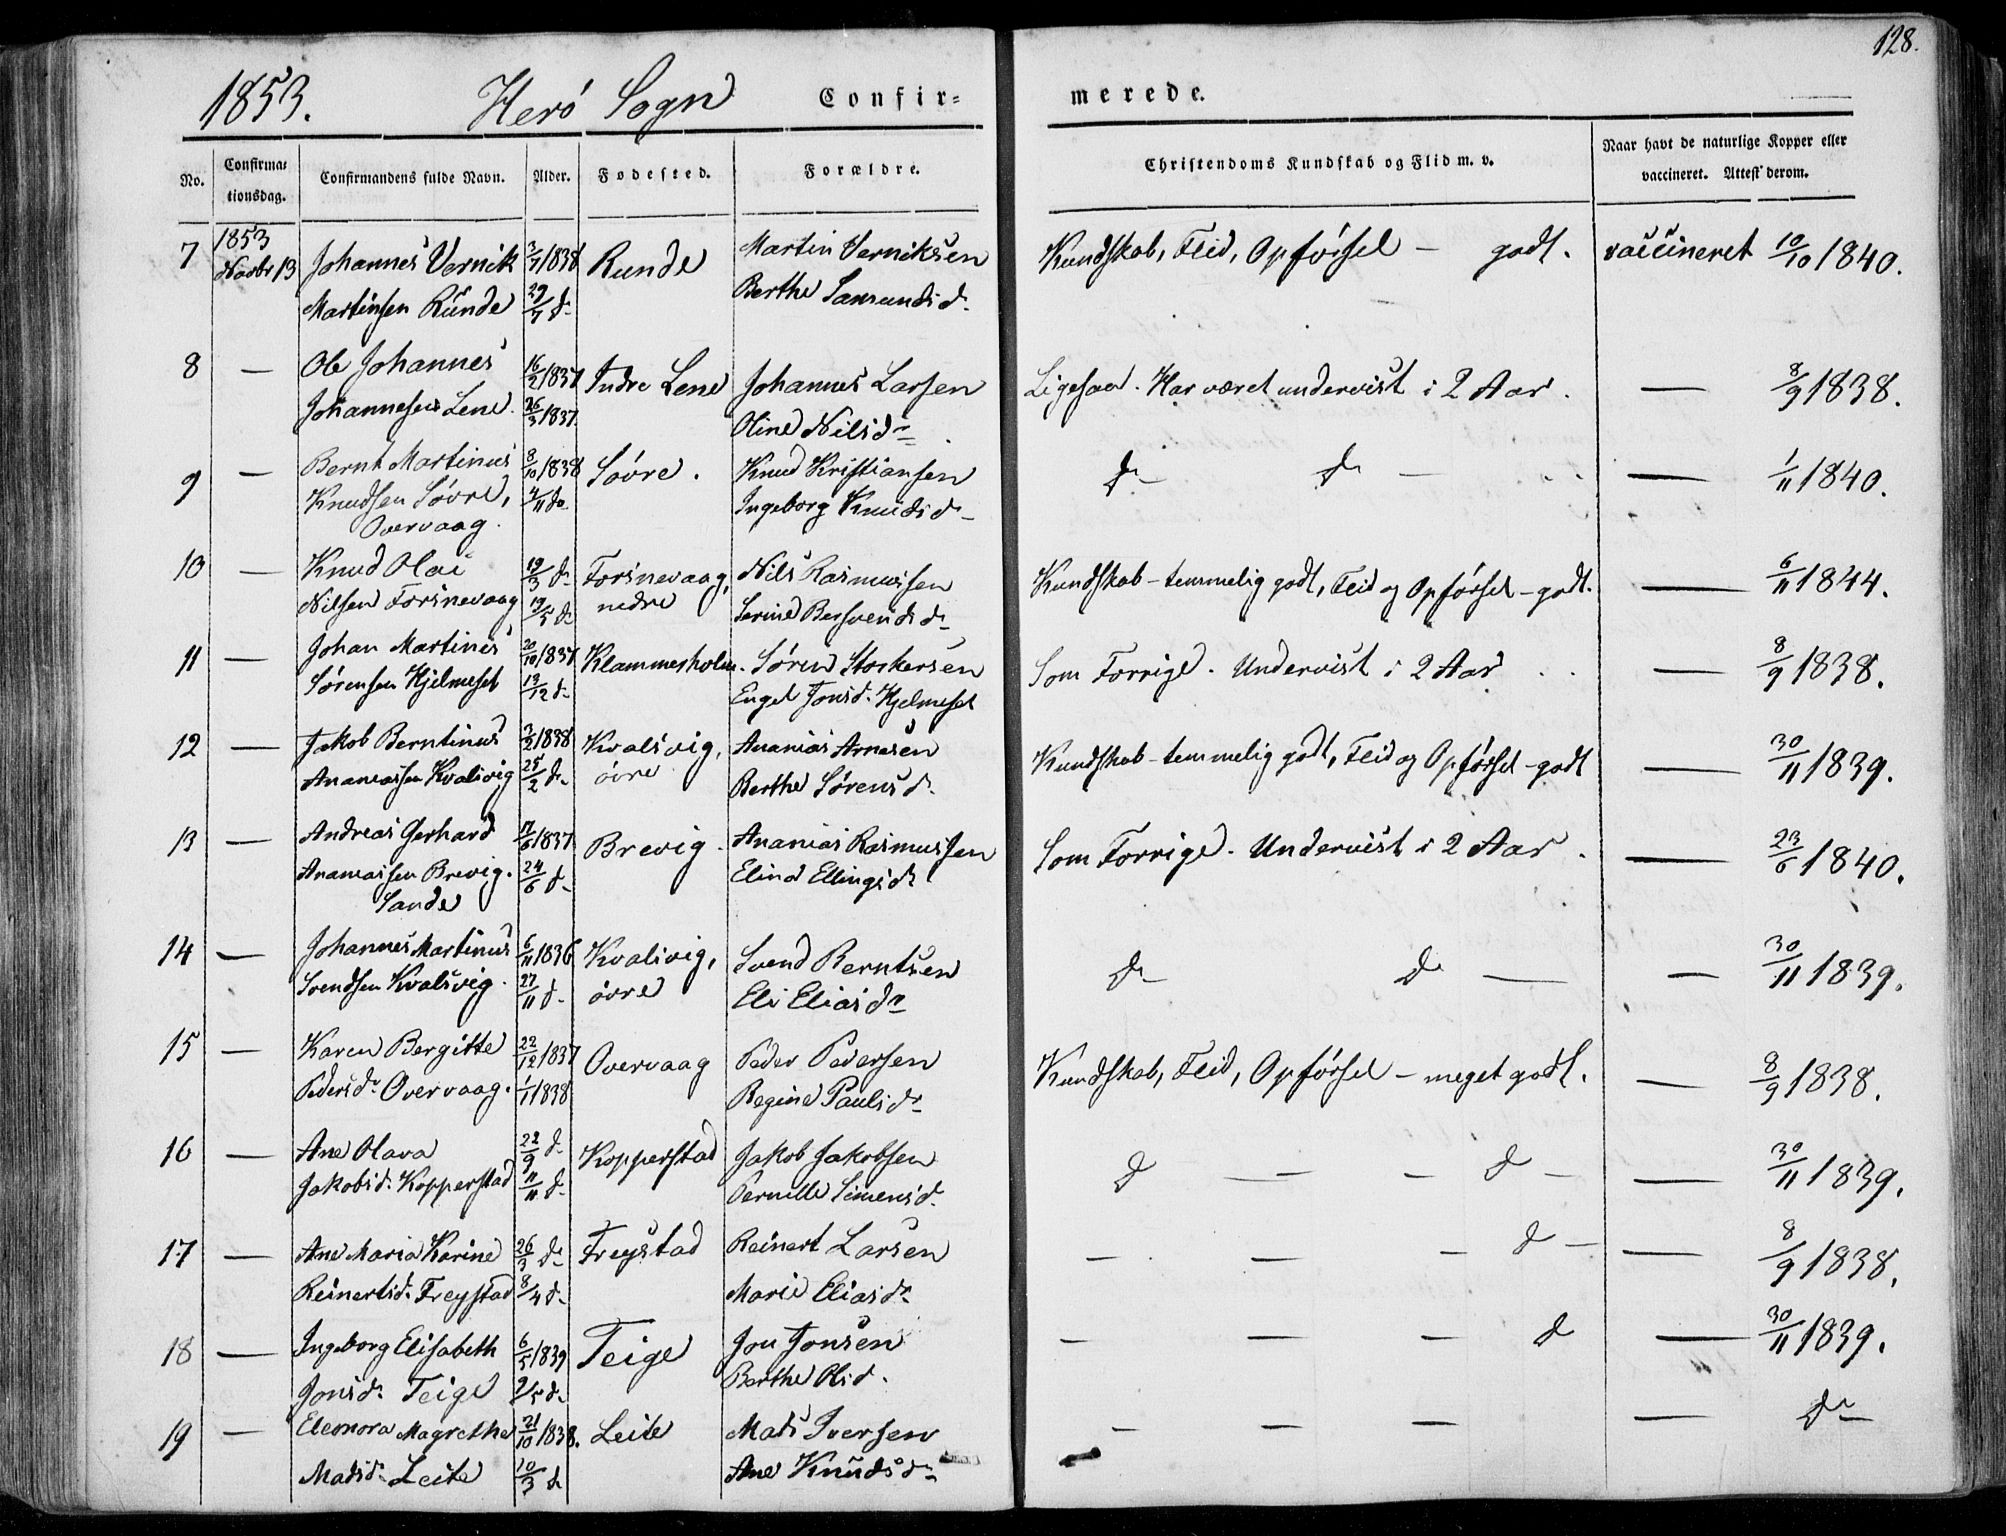 128.
1853. Herö Sogn Confir-
merede.
No. Confirma-tionsdag. Confirmandens fulde Navn. Alder. Fødested. Forældre. Christendoms Kundskab og Flid m. v. Naar havt de naturlige Kopper eller vaccineret. Attest derom.
7 1853 Novbr 13 Johannes Vernik 3/7 1838 Runde Martin Verniksen Kundskab, Flid, Opførsel - godt. vaccineret 10/10 1840.
Martinsen Runde 29/7 d- Berthe Samundsd.
8 — Ole Johannes 16/2 1837 Indre Lene Johannes Larsen Ligesaa. Har været undervist i 2 Aar. — 8/9 1838.
Johannesen Lene. 26/3 1837. Oline Nilsd-
9 — Bernt Martinus 8/10 1838 Søvre. Knud Kristiansen d- d- — 1/11 1840.
Knudsen Søvre, 4/11 do Ingeborg Knudsd-
Overvaag.
10 — Knud Olai 19/3 d- Forsnevaag, Nils Rasmussen Kundskab - temmelig godt, Flid og Opførsel - godt. — 6/11 1844.
Nilsen Forsnevaag 19/5 d- nedre Serine Bersvendsd-
11 — Johan Martines 20/10 1837 Klammersholm. Søren Storkersen Som Forrige. Undervist i 2 Aar — 8/9 1838.
Sørensen Hjelmeset 13/12 d- Engel Jonsd. Hjelmeset
12 — Jakob Berntinus 3/2 1838 Kvalsvig, Ananias Arnesen Kundskab - temmelig godt, Flid og Opførsel - godt — 30/11 1839.
Ananiassen Kvalsvig 25/2 d- övre Berthe Sörensd.
13 — Andreas Gerhard 17/6 1837 Brevig. Ananias Rasmussen Som Forrige. Undervist i 2 Aar. — 23/6 1840.
Ananiassen Brevig. 24/6 d- Elind Ellingsd.
Sande
14 — Johannes Martinus 6/11 1836 Kvalsvig, Svend Berntsen d- d- — 30/11 1839.
Svendsen Kvalsvig. 27/11 d- övre Eli Eliasd-
15 — Karen Bergitte 22/12 1837 Overvaag Peder Pedersen Kundskab, Flid, Opførsel - meget godt. — 8/9 1838.
Pedersd. Overvaag. 1/1 1838 Regine Paulsd-
16 — Ane Olava 22/9 d- Kopperstad Jakob Jakobsen d — - d - — 30/11 1839.
Jakobsd. Kopperstad 11/11 d- Pernille Simensd.
17 — Ane Maria Karine 26/3 d- Freystad Reinert Larsen — — - d - — 8/9 1838.
Reinertsd. Freystad 8/4 d- Marie Eliasd.
18 — Ingeborg Elisabeth 6/5 1839 Teige Jon Jonsen — — — d — 30/11 1839.
Jonsd. Teige 9/5 d- Berthe Olsd.
19 — Eleonora Magrethe 21/10 1838. Leite Mads Iversen — — — — d-
Madsd. Leite 10/3 d Ane Knudsd-